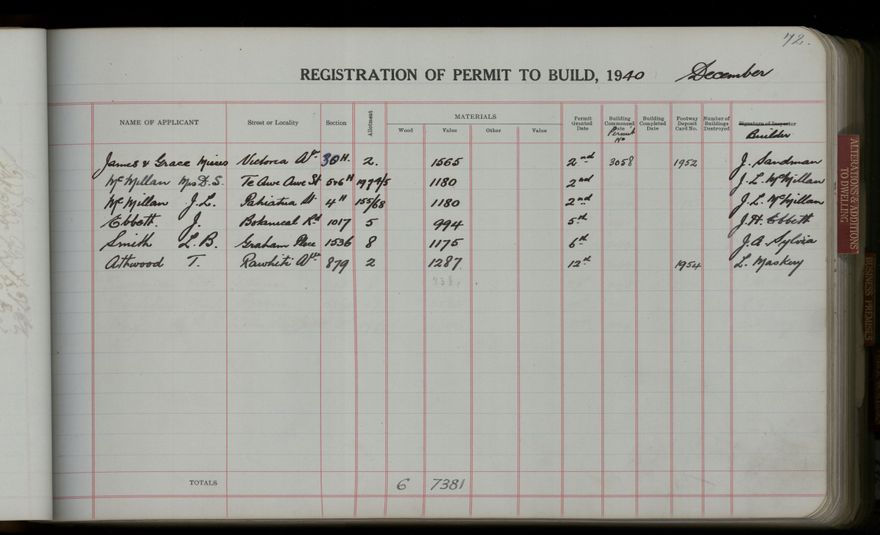 72.
REGISTRATION OF PERMIT TO BUILD, 1940 December
NAME OF APPLICANT Street or Locality Section Allotment MATERIALS Wood Value Other Value Permit Granted Date Building Commenced Date Permit No Building Completed Date Footway Deposit Card No. Number of Buildings Destroyed Signature of Inspector Builder
James & Grace Misses Victoria Av. 30H. 2. 1565 2nd 3058 1952 J. Sandman
McMillan Mrs D.S. Te Awe Awe St 506H 1180 2nd J. L. McMillan
McMillan J.L. Pahiatua St 4H 155/68 1180 2nd J. L. McMillan
Ebbett. J. Botanical Rd 1017 5 994 5th J.H. Ebbett
Smith L.B. Graham Place 1536 8 1175 6th J.A. Sylvia
Athwood T. Rawhiti Ave 879 2 1287 12th 1954 L. Maskery
TOTALS 6 7381
ALTERATIONS & ADDITIONS
TO DWELLING
BUSINESS PREMISES